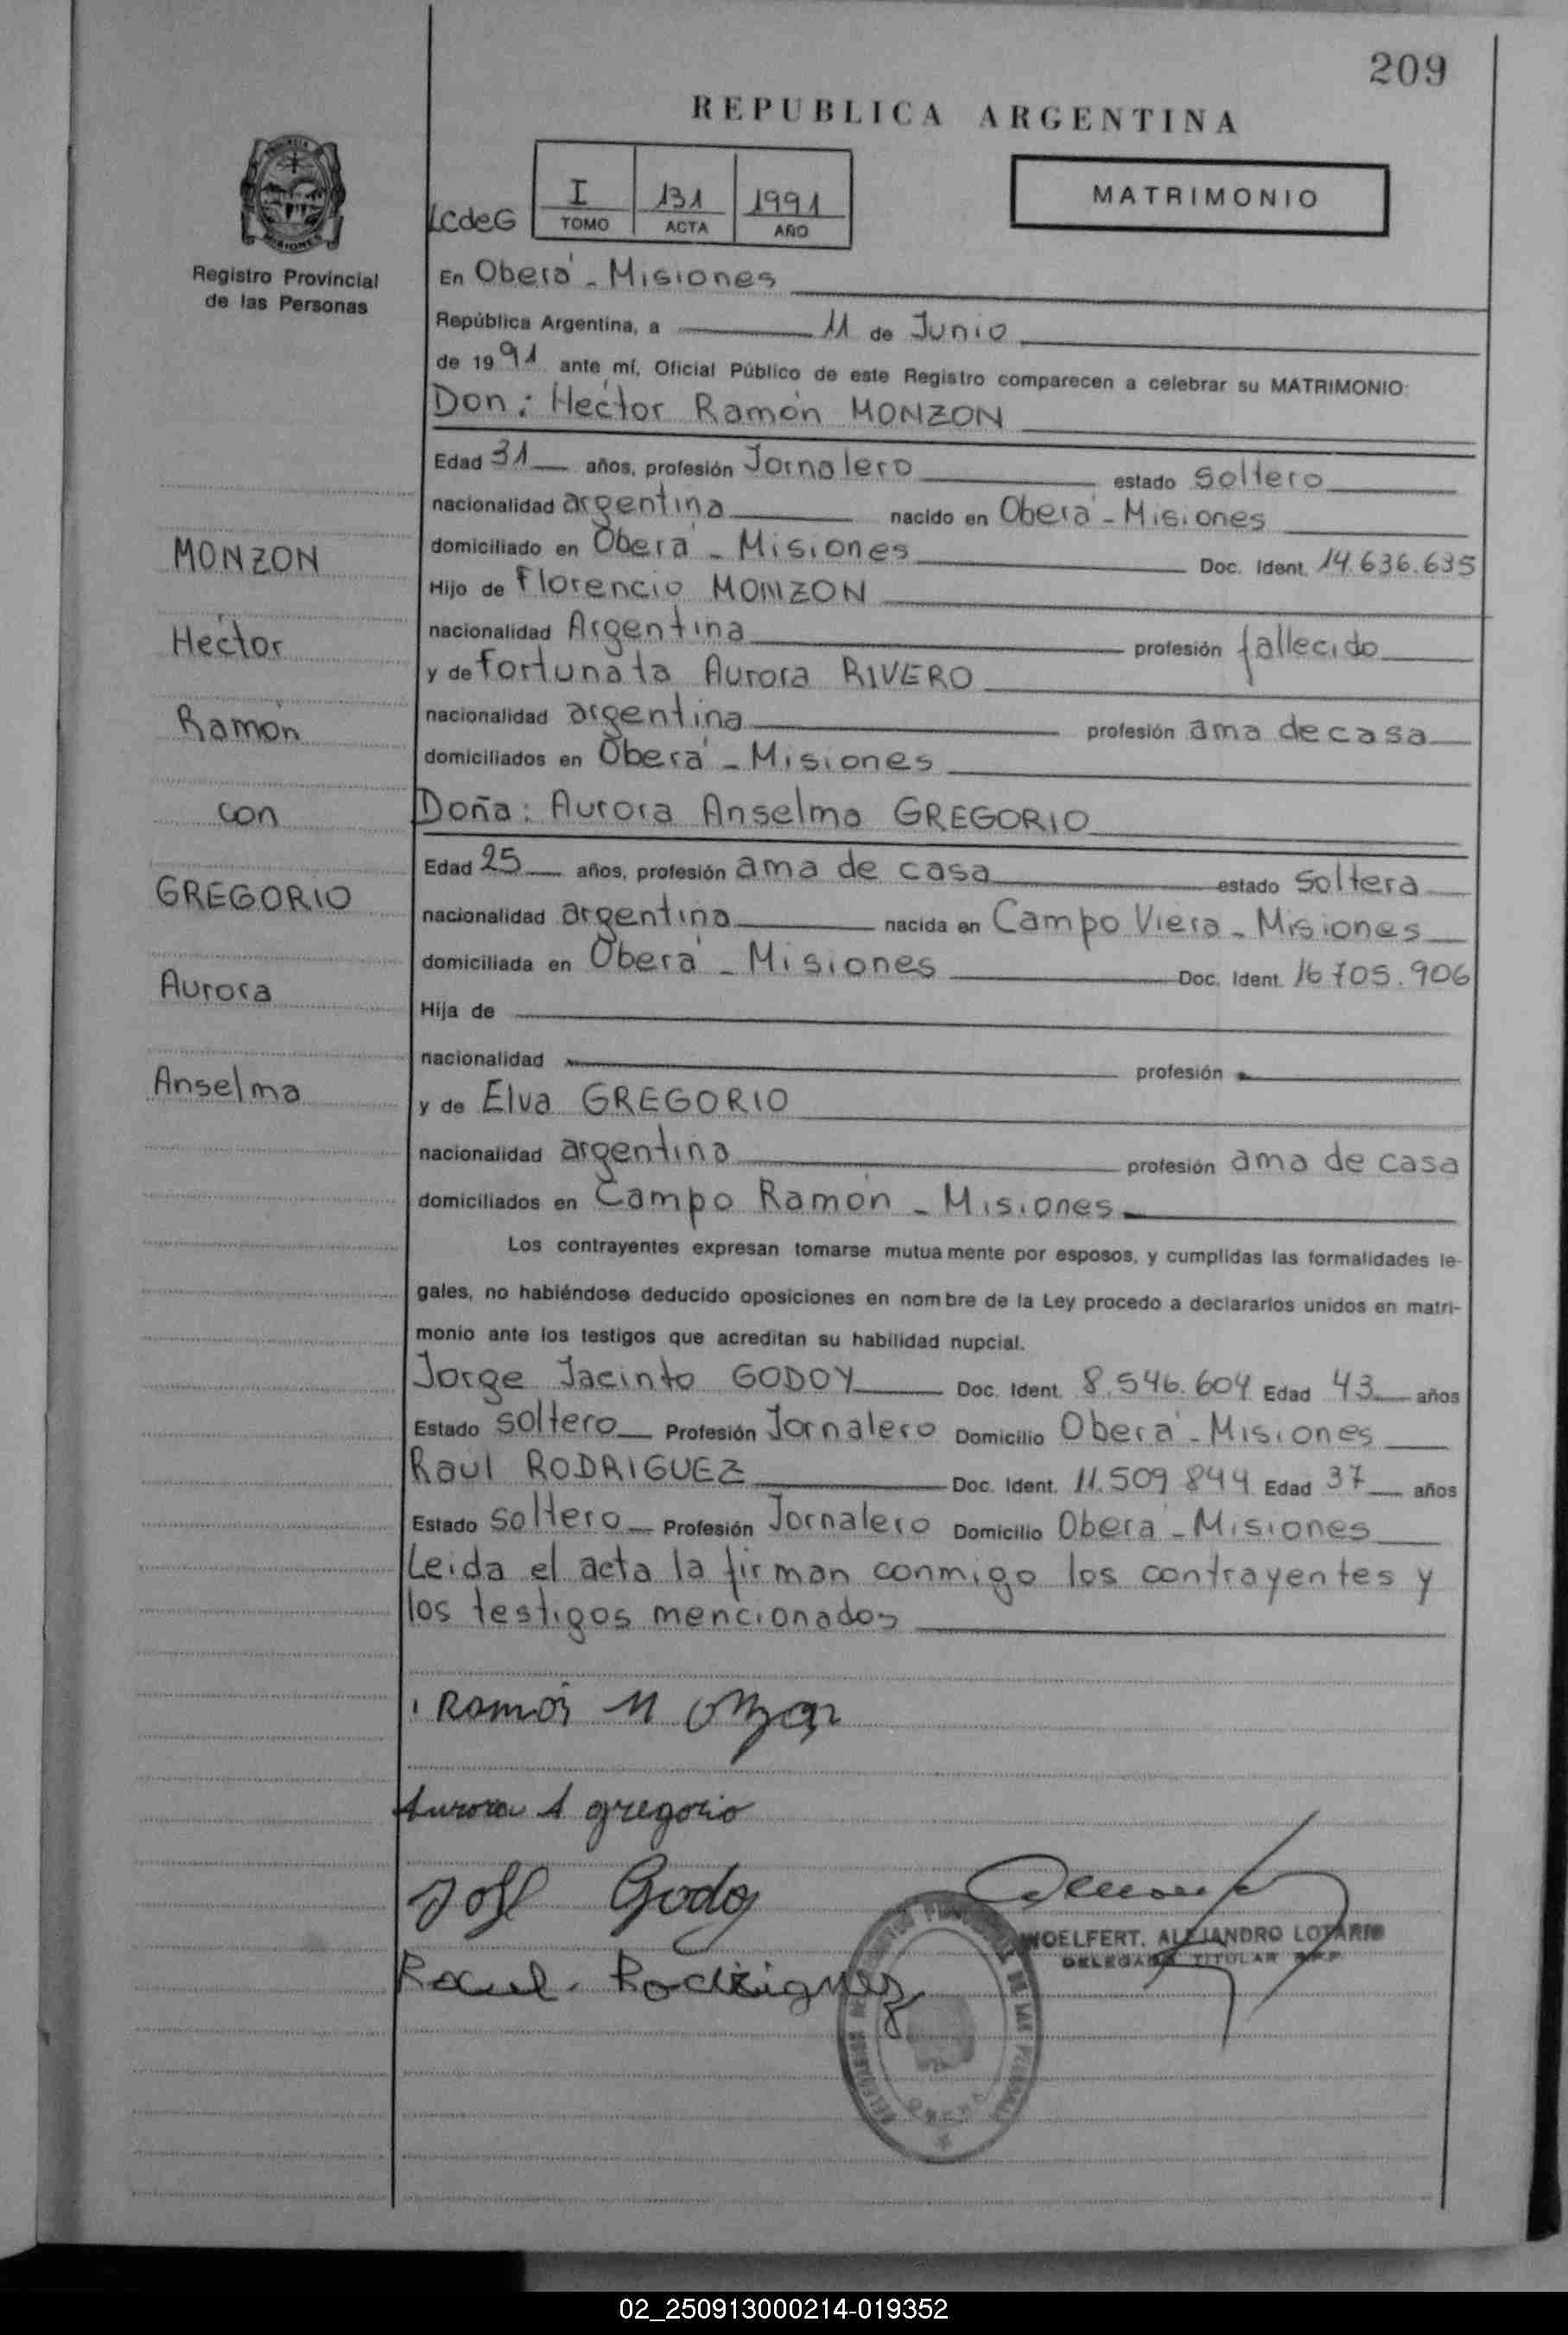 209
REPUBLICA ARGENTINA
MATRIMONIO
LCdeG
I 131 1991
TOMO ACTA AÑO
Registro Provincial
de las Personas
En Oberá - Misiones
República Argentina, a 11 de Junio
de 1991 ante mí, Oficial Público de este Registro comparecen a celebrar su MATRIMONIO:
Don: Héctor Ramón MONZON
Edad 31 años, profesión Jornalero estado soltero
nacionalidad argentina nacido en Oberá - Misiones
domiciliado en Oberá - Misiones Doc. Ident. 14.636.635
Hijo de Florencio MONZON
nacionalidad Argentina profesión fallecido
y de Fortunata Aurora RIVERO
nacionalidad argentina profesión ama de casa
domiciliados en Oberá - Misiones
Doña: Aurora Anselma GREGORIO
Edad 25 años, profesión ama de casa estado soltera
nacionalidad argentina nacida en Campo Viera - Misiones
domiciliada en Oberá - Misiones Doc. Ident. 16.705.906
Hija de
nacionalidad profesión
y de Elva GREGORIO
nacionalidad argentina profesión ama de casa
domiciliados en Campo Ramón - Misiones
Los contrayentes expresan tomarse mutuamente por esposos, y cumplidas las formalidades le-
gales, no habiéndose deducido oposiciones en nombre de la Ley procedo a declararlos unidos en matri-
monio ante los testigos que acreditan su habilidad nupcial.
Jorge Jacinto GODOY Doc. Ident. 8.546.604 Edad 43 años
Estado soltero Profesión Jornalero Domicilio Oberá - Misiones
Raul RODRIGUEZ Doc. Ident. 11.509.844 Edad 37 años
Estado soltero Profesión Jornalero Domicilio Oberá - Misiones
Leida el acta la firman conmigo los contrayentes y
los testigos mencionados
MONZON
Héctor
Ramón
con
GREGORIO
Aurora
Anselma
Ramón Monzon
Aurora A gregorio
Godoy
Raul. Rodriguez
WOELFERT, ALEJANDRO LOTARIO
DELEGADO TITULAR R.P.P.
02_250913000214-019352